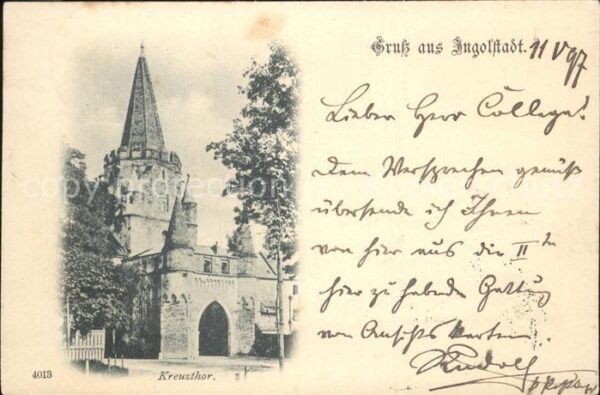 Gruß aus Ingolstadt. 11 V 97
Lieber Herr College!
Dem Versprechen gemäß
übersende ich Ihnen
von hier aus die II te
hier zu habende Gattung
von Ansichts Karten
Rudolf
4013
Kreuzthor.